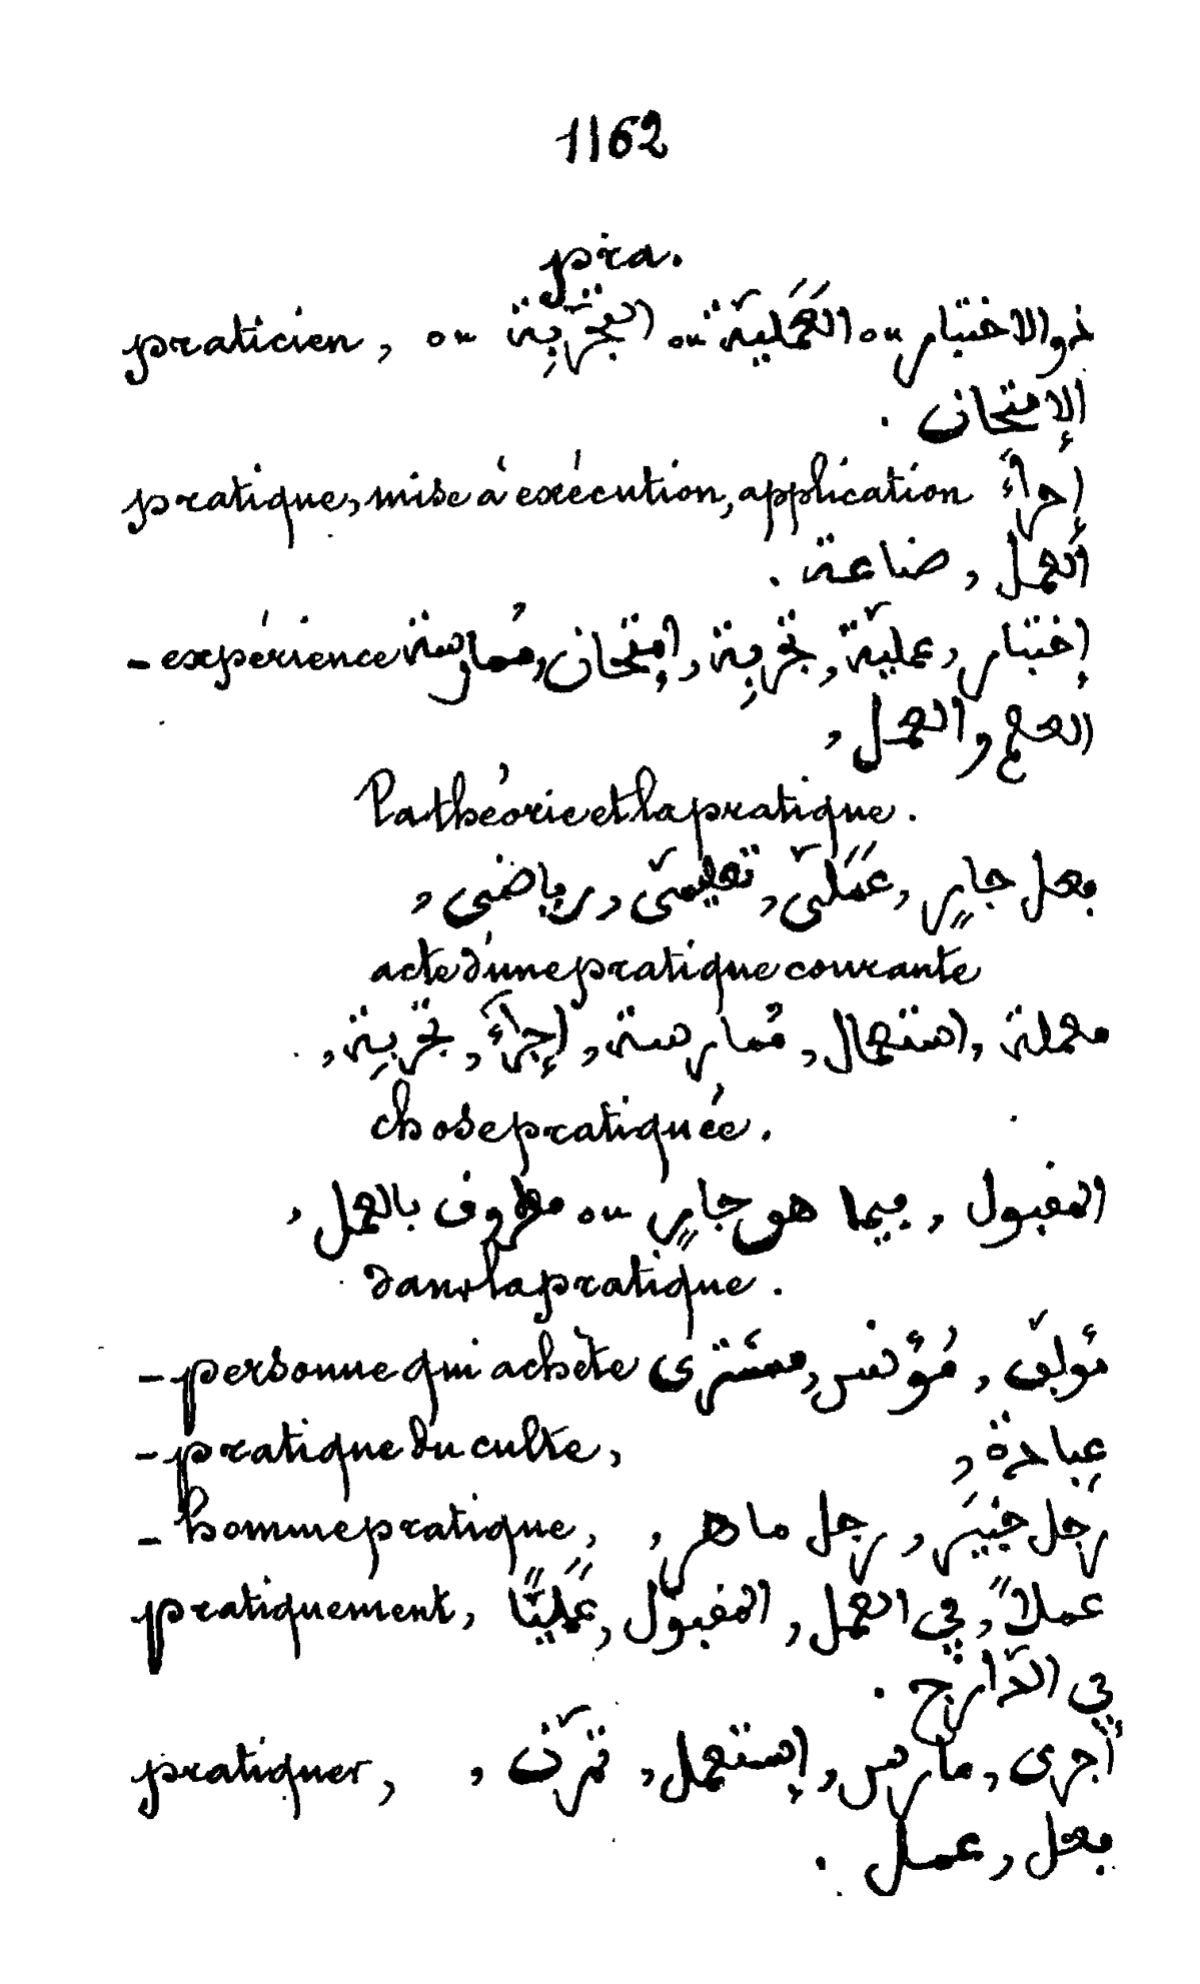 1162
pra.
praticien, ذو الاختبار ou العَمَليّة ou التجرّبِة ou
الإمتحان .
pratique, mise à exécution, application إجراءً
ألعمل , صناعة .
- expérience إختبار, عمليّة, تجربِة, إمتحان, مُمارسة
العلم والعمل ,
la théorie et la pratique .
فعل جارٍ , عَمَليّ , تعليميّ , رياضي ,
acte d'une pratique courante
معملة , استعمال , مُمارسة , إجراءَ , تجربِة ,
chose pratiquée .
المفبول , فيما هو جارٍ ou معروف بالعمل ,
dans la pratique .
- personne qui achète مُؤنس, مشتري
- pratique du culte, عِبادة ,
- homme pratique, رجل خبير , رجل ماهر ,
pratiquement, عملاً , في العمل , المفبول , عَمَليًّا
في الدّارج .
pratiquer, أجرى , مارس , إستعمل , تمرّن ,
فعل , عمل .